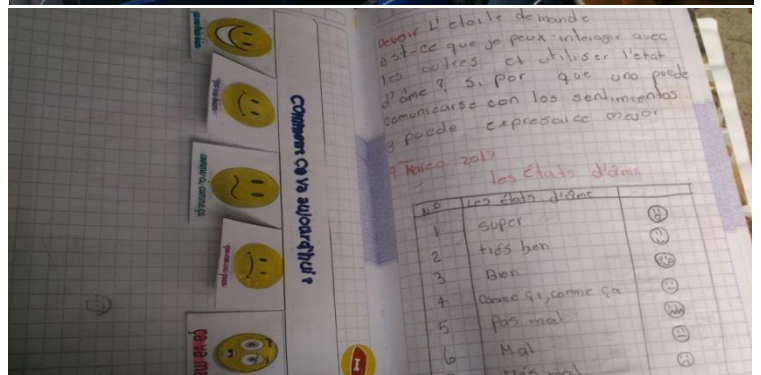 Comment ça va aujourd'hui ?
ça va ma
Devoir L'etoile demande
est-ce que je peux interagir avec
les autres et utiliser l'etat
d'âme ? Si, por que uno puede
comunicarse con los sentimientos
y puede expresarce mejor
9 2019
les états d'âme
Nº les états d'âme
1 super
2 trés ben
3 Bien
4 Comme çi, comme ça
5 Pas mal
6 Mal
trés mal